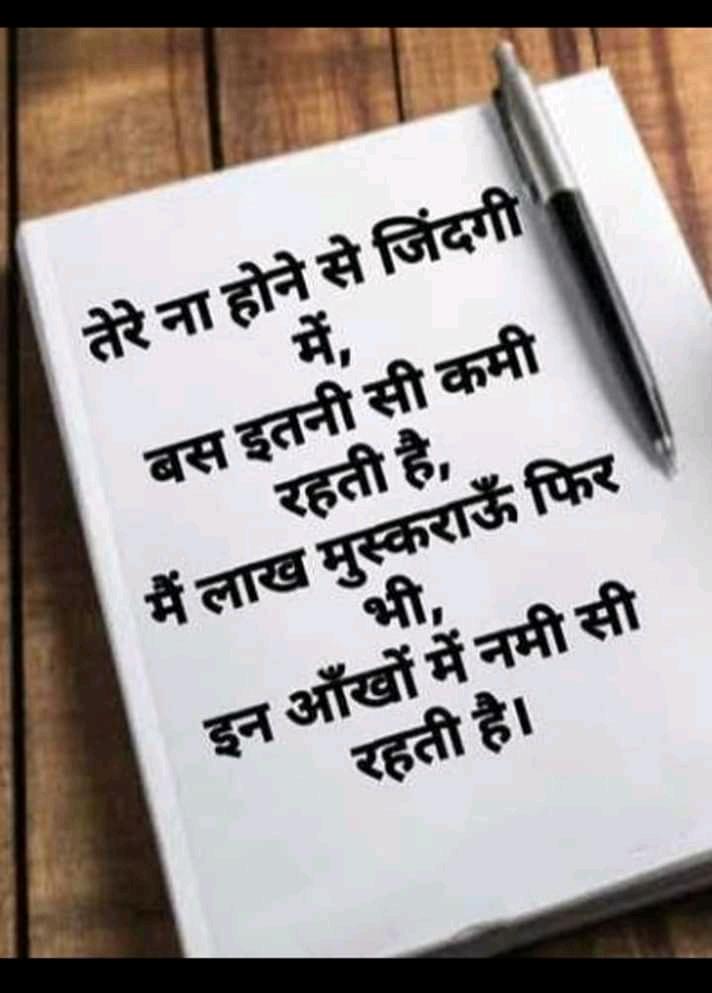 तेरे ना होने से जिंदगी
में,
बस इतनी सी कमी
रहती है,
मैं लाख मुस्कराऊँ फिर
भी,
इन आँखों में नमी सी
रहती है।